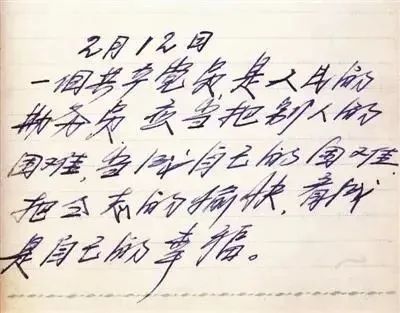 2月12日
一個共产党员是人民的
勤务员应当把别人的
困难，当成自己的困难，
把同志的愉快，看成
是自己的幸福。